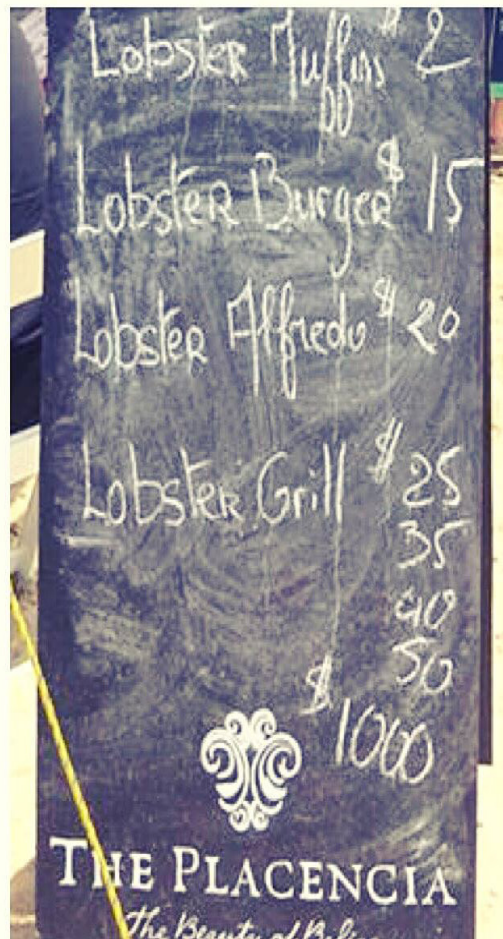 Lobster Muffins $2
Lobster Burger $15
Lobster Alfredo $20
Lobster Grill $25
35
40
50
$1000
THE PLACENCIA
The Beauty of